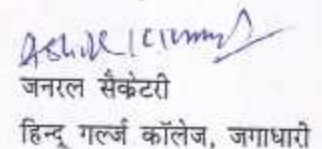 Ashok Kumar
जनरल सैक्रेटरी
हिन्दू गर्ल्ज कॉलेज, जगाधारी